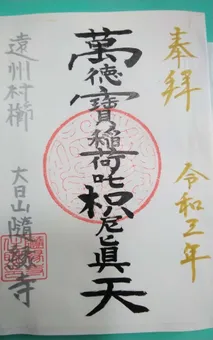 奉拝
令和三年
萬徳寶稲荷吒枳尼眞天
遠州村櫛
大日山隨縁寺